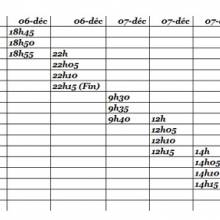 06-déc 06-déc 07-déc 07-déc 07-
18h45
18h50
18h55 22h
22h05
22h10
22h15 (Fin)
9h30
9h35
9h40 12h
12h05
12h10
12h15 14h
14h05
14h10
14h15